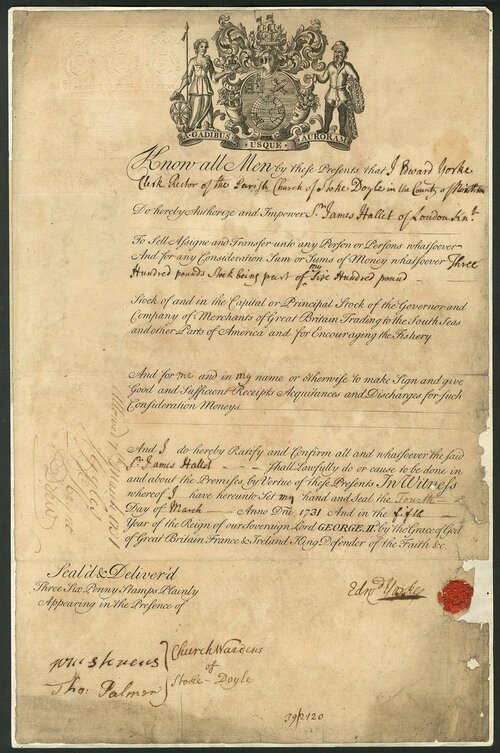 A GADIBUS USQUE AURORAM
Know all Men by these Presents that I Edward Yorke
Clerk Rector of the Parish Church of Stoke Doyle in the County of
Do hereby Authorize and Impower Sr. James Hallet of London Knt.
To Sell Assigne and Transfer unto any Person or Persons whatsoever
And for any Consideration Sum or Sums of Money whatsoever Three
Hundred pounds Stock being part of my Five Hundred pound
Stock of and in the Capital or Principal Stock of the Governor and
Company of Merchants of Great Britain Trading to the South Seas
and other Parts of America and for Encouraging the Fishery.
And for me and in my name or otherwise to make Sign and give
Good and Sufficient Receipts Acquitances and Discharges for such
Consideration Moneys.
And I do hereby Ratify and Confirm all and whatsoever the said
Sr. James Hallet Shall Lawfully do or cause to be done in
and about the Premises by Virtue of these Presents In Witness
whereof I have hereunto Set my hand and Seal the Fourth
Day of March Anno Dni 1731 And in the fifth
Year of the Reign of our Sovereign Lord GEORGE II. by the Grace of God
of Great Britain France & Ireland King Defender of the Faith &c.
Seal'd & Deliver'd
Three Six Penny Stamps Plainly
Appearing in the Presence of
Edwd Yorke
Wm Stevens
Tho: Palmer
Church Wardens
of
Stoke-Doyle
392120